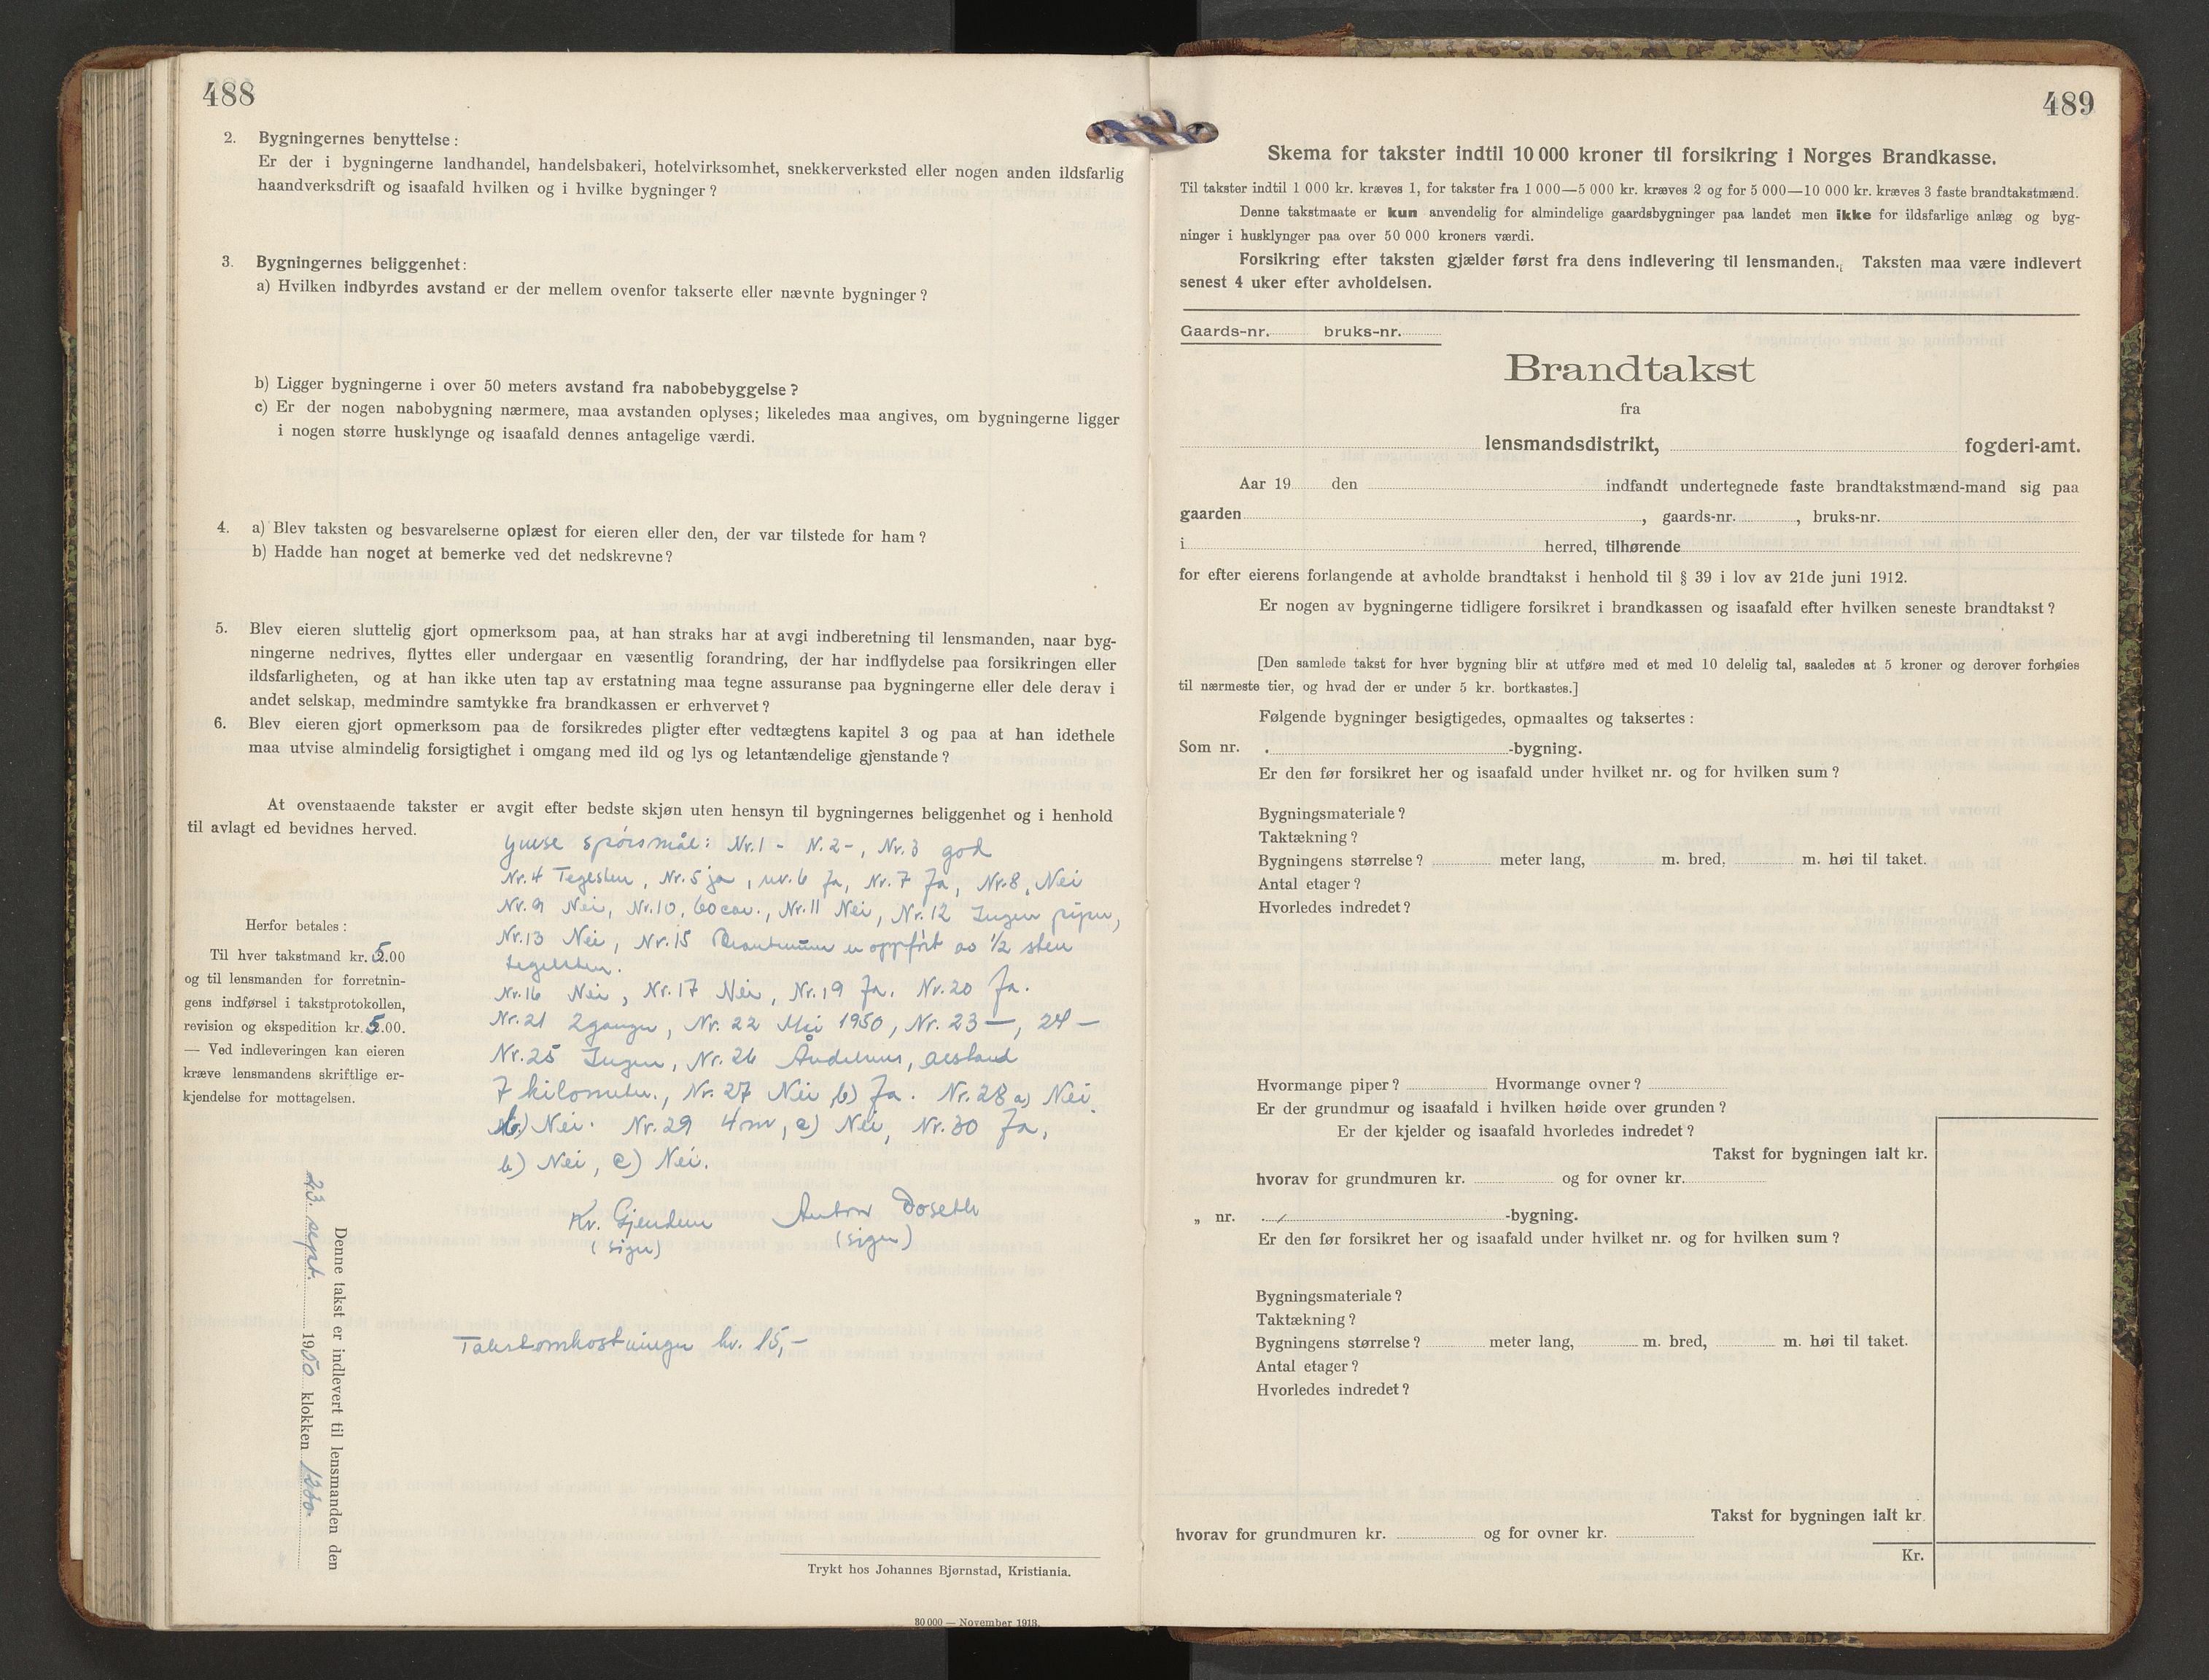 488
2. Bygningernes benyttelse:
Er der i bygningerne landhandel, handelsbakeri, hotelvirksomhet, snekkerverksted eller nogen anden ildsfarlig
haandverksdrift og isaafald hvilken og i hvilke bygninger?
3. Bygningernes beliggenhet:
a) Hvilken indbyrdes avstand er der mellem ovenfor takserte eller nævnte bygninger?
b) Ligger bygningerne i over 50 meters avstand fra nabobebyggelse?
c) Er der nogen nabobygning nærmere, maa avstanden oplyses; likeledes maa angives, om bygningerne ligger
i nogen større husklynge og isaafald dennes antagelige værdi.
4. a) Blev taksten og besvarelserne oplæst for eieren eller den, der var tilstede for ham?
b) Hadde han noget at bemerke ved det nedskrevne?
5. Blev eieren sluttelig gjort opmerksom paa, at han straks har at avgi indberetning til lensmanden, naar byg-
ningerne nedrives, flyttes eller undergaar en væsentlig forandring, der har indflydelse paa forsikringen eller
ildsfarligheten, og at han ikke uten tap av erstatning maa tegne assuranse paa bygningerne eller dele derav i
andet selskap, medmindre samtykke fra brandkassen er erhvervet?
6. Blev eieren gjort opmerksom paa de forsikredes pligter efter vedtægtens kapitel 3 og paa at han idethele
maa utvise almindelig forsigtighet i omgang med ild og lys og letantændelige gjenstande?
At ovenstaaende takster er avgit efter bedste skjøn uten hensyn til bygningernes beliggenhet og i henhold
til avlagt ed bevidnes herved.
spørsmål: Nr.1 - N.2-, Nr.3 god
Nr.4 Teglsten, Nr.5 ja, nr.6 Ja, Nr.7 Ja, Nr.8, Nei
Nr.9 Nei, Nr.10, 60 cm., Nr.11 Nei, Nr.12 Ingen piper,
Nr.13 Nei, Nr.15 Brantmur er oppført av 1/2 sten
teglsten.
Nr.16 Nei, Nr.17 Nei, Nr.19 Ja. Nr.20 Ja.
Nr.21 2 ganger, Nr. 22 Mai 1950, Nr. 23 —, 24 —
Nr.25 Ingen, Nr.26 Åndalsnes, avstand
7 kilometer., Nr.27 Nei, b) Ja. Nr.28 a) Nei,
b.) Nei. Nr.29 4 m, c) Nei, Nr.30 Ja,
b) Nei, c) Nei.
Kr. Gjendem Anton Doseth
(sign) (sign)
Takstomkostninger kr. 15,-
Herfor betales:
Til hver takstmand kr. 5.00
og til lensmanden for forretnin-
gens indførsel i takstprotokollen,
revision og ekspedition kr. 5.00.
— Ved indleveringen kan eieren
kræve lensmandens skriftlige er-
kjendelse for mottagelsen.
Denne takst er indlevert til lensmanden den
23. sept. 1950 klokken
Trykt hos Johannes Bjørnstad, Kristiania.
30 000 — November 1913.
489
Skema for takster indtil 10 000 kroner til forsikring i Norges Brandkasse.
Til takster indtil 1 000 kr. kræves 1, for takster fra 1 000—5 000 kr. kræves 2 og for 5 000—10 000 kr. kræves 3 faste brandtakstmænd.
Denne takstmaate er kun anvendelig for almindelige gaardsbygninger paa landet men ikke for ildsfarlige anlæg og byg-
ninger i husklynger paa over 50 000 kroners værdi.
Forsikring efter taksten gjælder først fra dens indlevering til lensmanden. Taksten maa være indlevert
senest 4 uker efter avholdelsen.
Gaards-nr. bruks-nr.
Brandtakst
fra
lensmandsdistrikt, fogderi-amt.
Aar 19 den indfandt undertegnede faste brandtakstmænd-mand sig paa
gaarden , gaards-nr. , bruks-nr.
i herred, tilhørende
for efter eierens forlangende at avholde brandtakst i henhold til § 39 i lov av 21de juni 1912.
Er nogen av bygningerne tidligere forsikret i brandkassen og isaafald efter hvilken seneste brandtakst?
[Den samlede takst for hver bygning blir at utføre med et med 10 delelig tal, saaledes at 5 kroner og derover forhøies
til nærmeste tier, og hvad der er under 5 kr. bortkastes.]
Følgende bygninger besigtigedes, opmaaltes og taksertes:
Som nr. -bygning.
Er den før forsikret her og isaafald under hvilket nr. og for hvilken sum?
Bygningsmateriale?
Taktækning?
Bygningens størrelse? meter lang, m. bred, m. høi til taket.
Antal etager?
Hvorledes indredet?
Hvormange piper? Hvormange ovner?
Er der grundmur og isaafald i hvilken høide over grunden?
Er der kjelder og isaafald hvorledes indredet?
Takst for bygningen ialt kr.
hvorav for grundmuren kr. og for ovner kr.
„ nr. -bygning.
Er den før forsikret her og isaafald under hvilket nr. og for hvilken sum?
Bygningsmateriale?
Taktækning?
Bygningens størrelse? meter lang, m. bred, m. høi til taket.
Antal etager?
Hvorledes indredet?
Takst for bygningen ialt kr.
hvorav for grundmuren kr. og for ovner kr.
Kr.